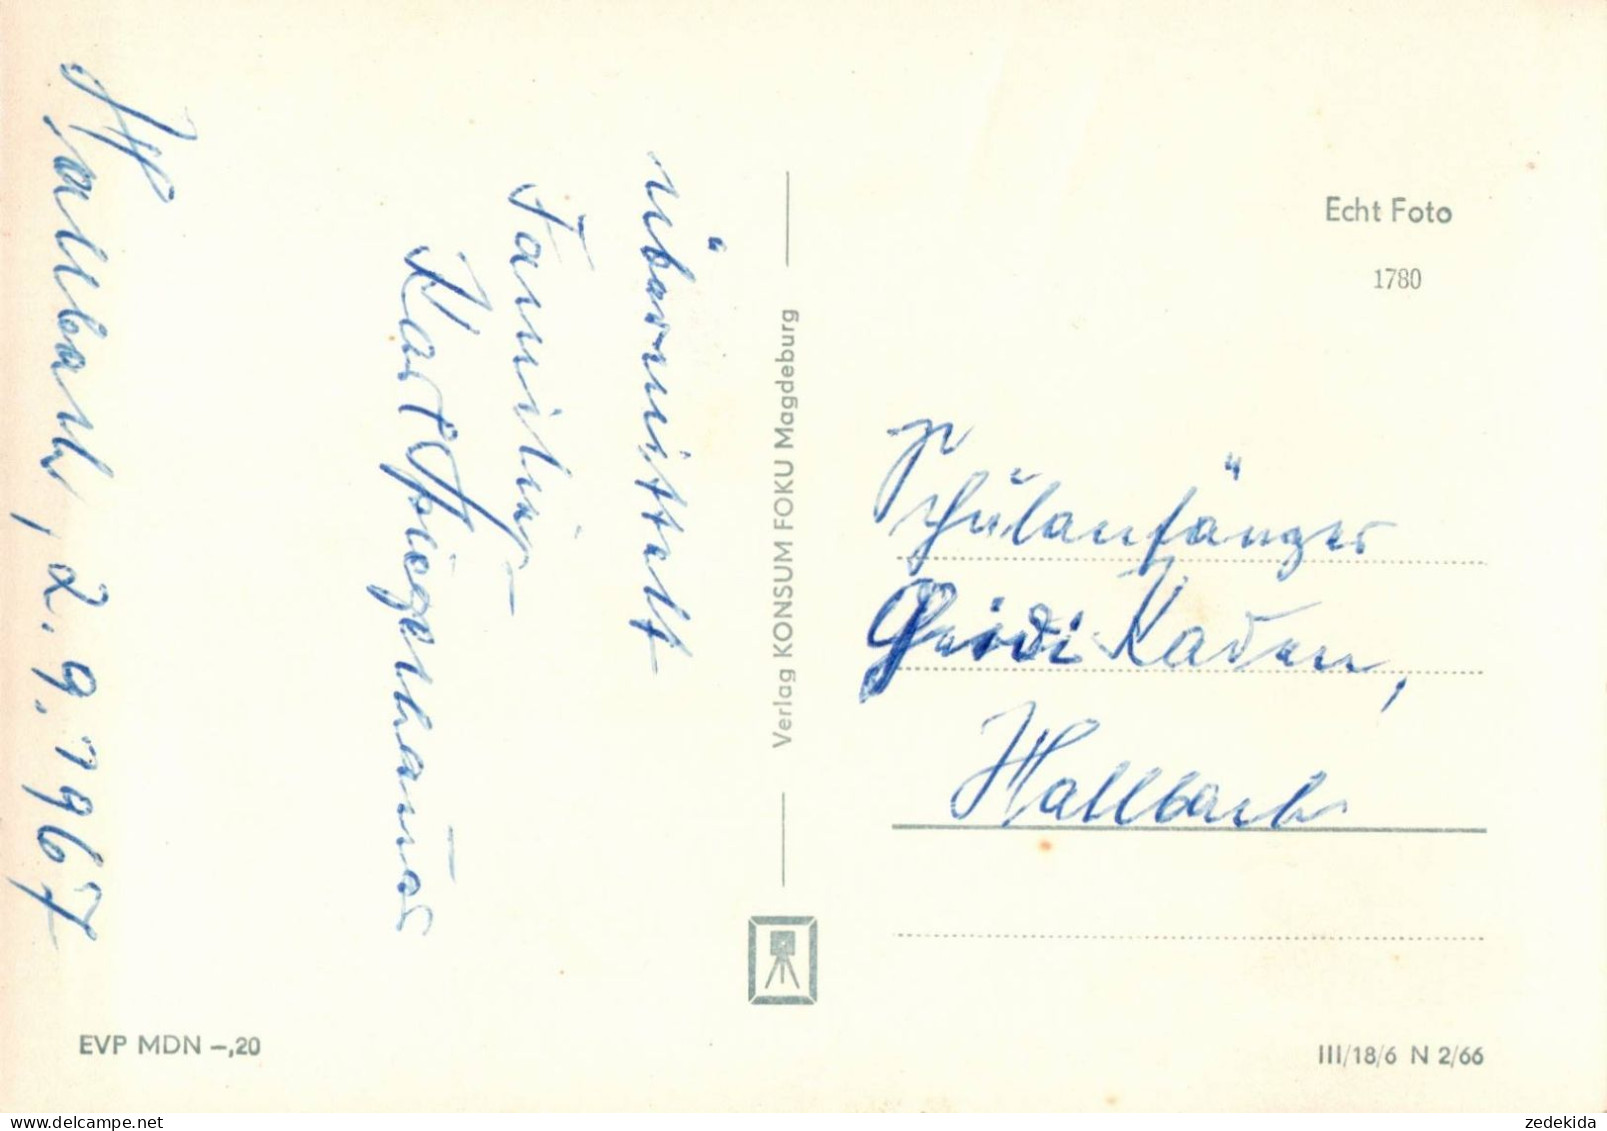 Hallbach, 2.9.1967
übermittelt
Familie
Karl Hiegenhauer
Verlag KONSUM FOKU Magdeburg
Echt Foto
1780
Schulanfänger
Heidi Kaden,
Hallbach
EVP MDN –,20
III/18/6 N 2/66
zedekida